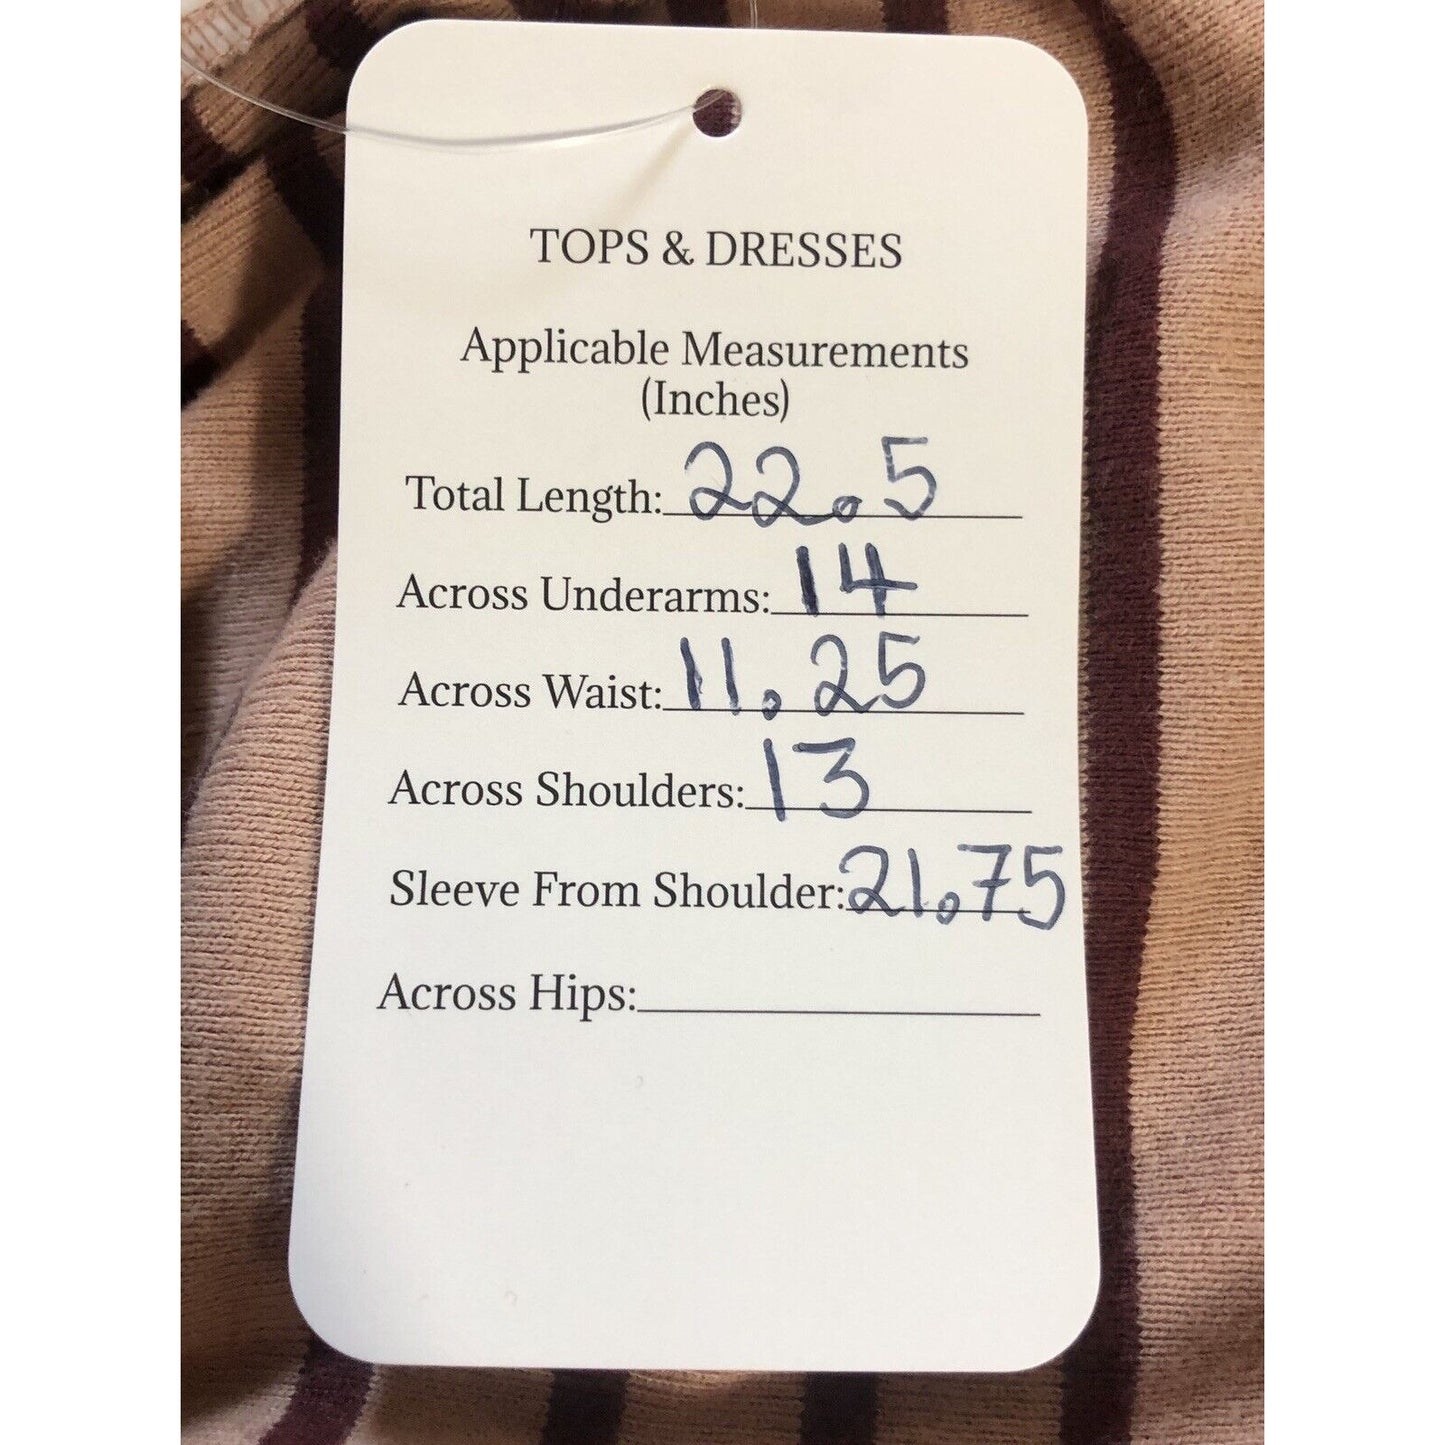 TOPS & DRESSES
Applicable Measurements
(Inches)
Total Length: 22.5
Across Underarms: 14
Across Waist: 11.25
Across Shoulders: 13
Sleeve From Shoulder: 21.75
Across Hips: